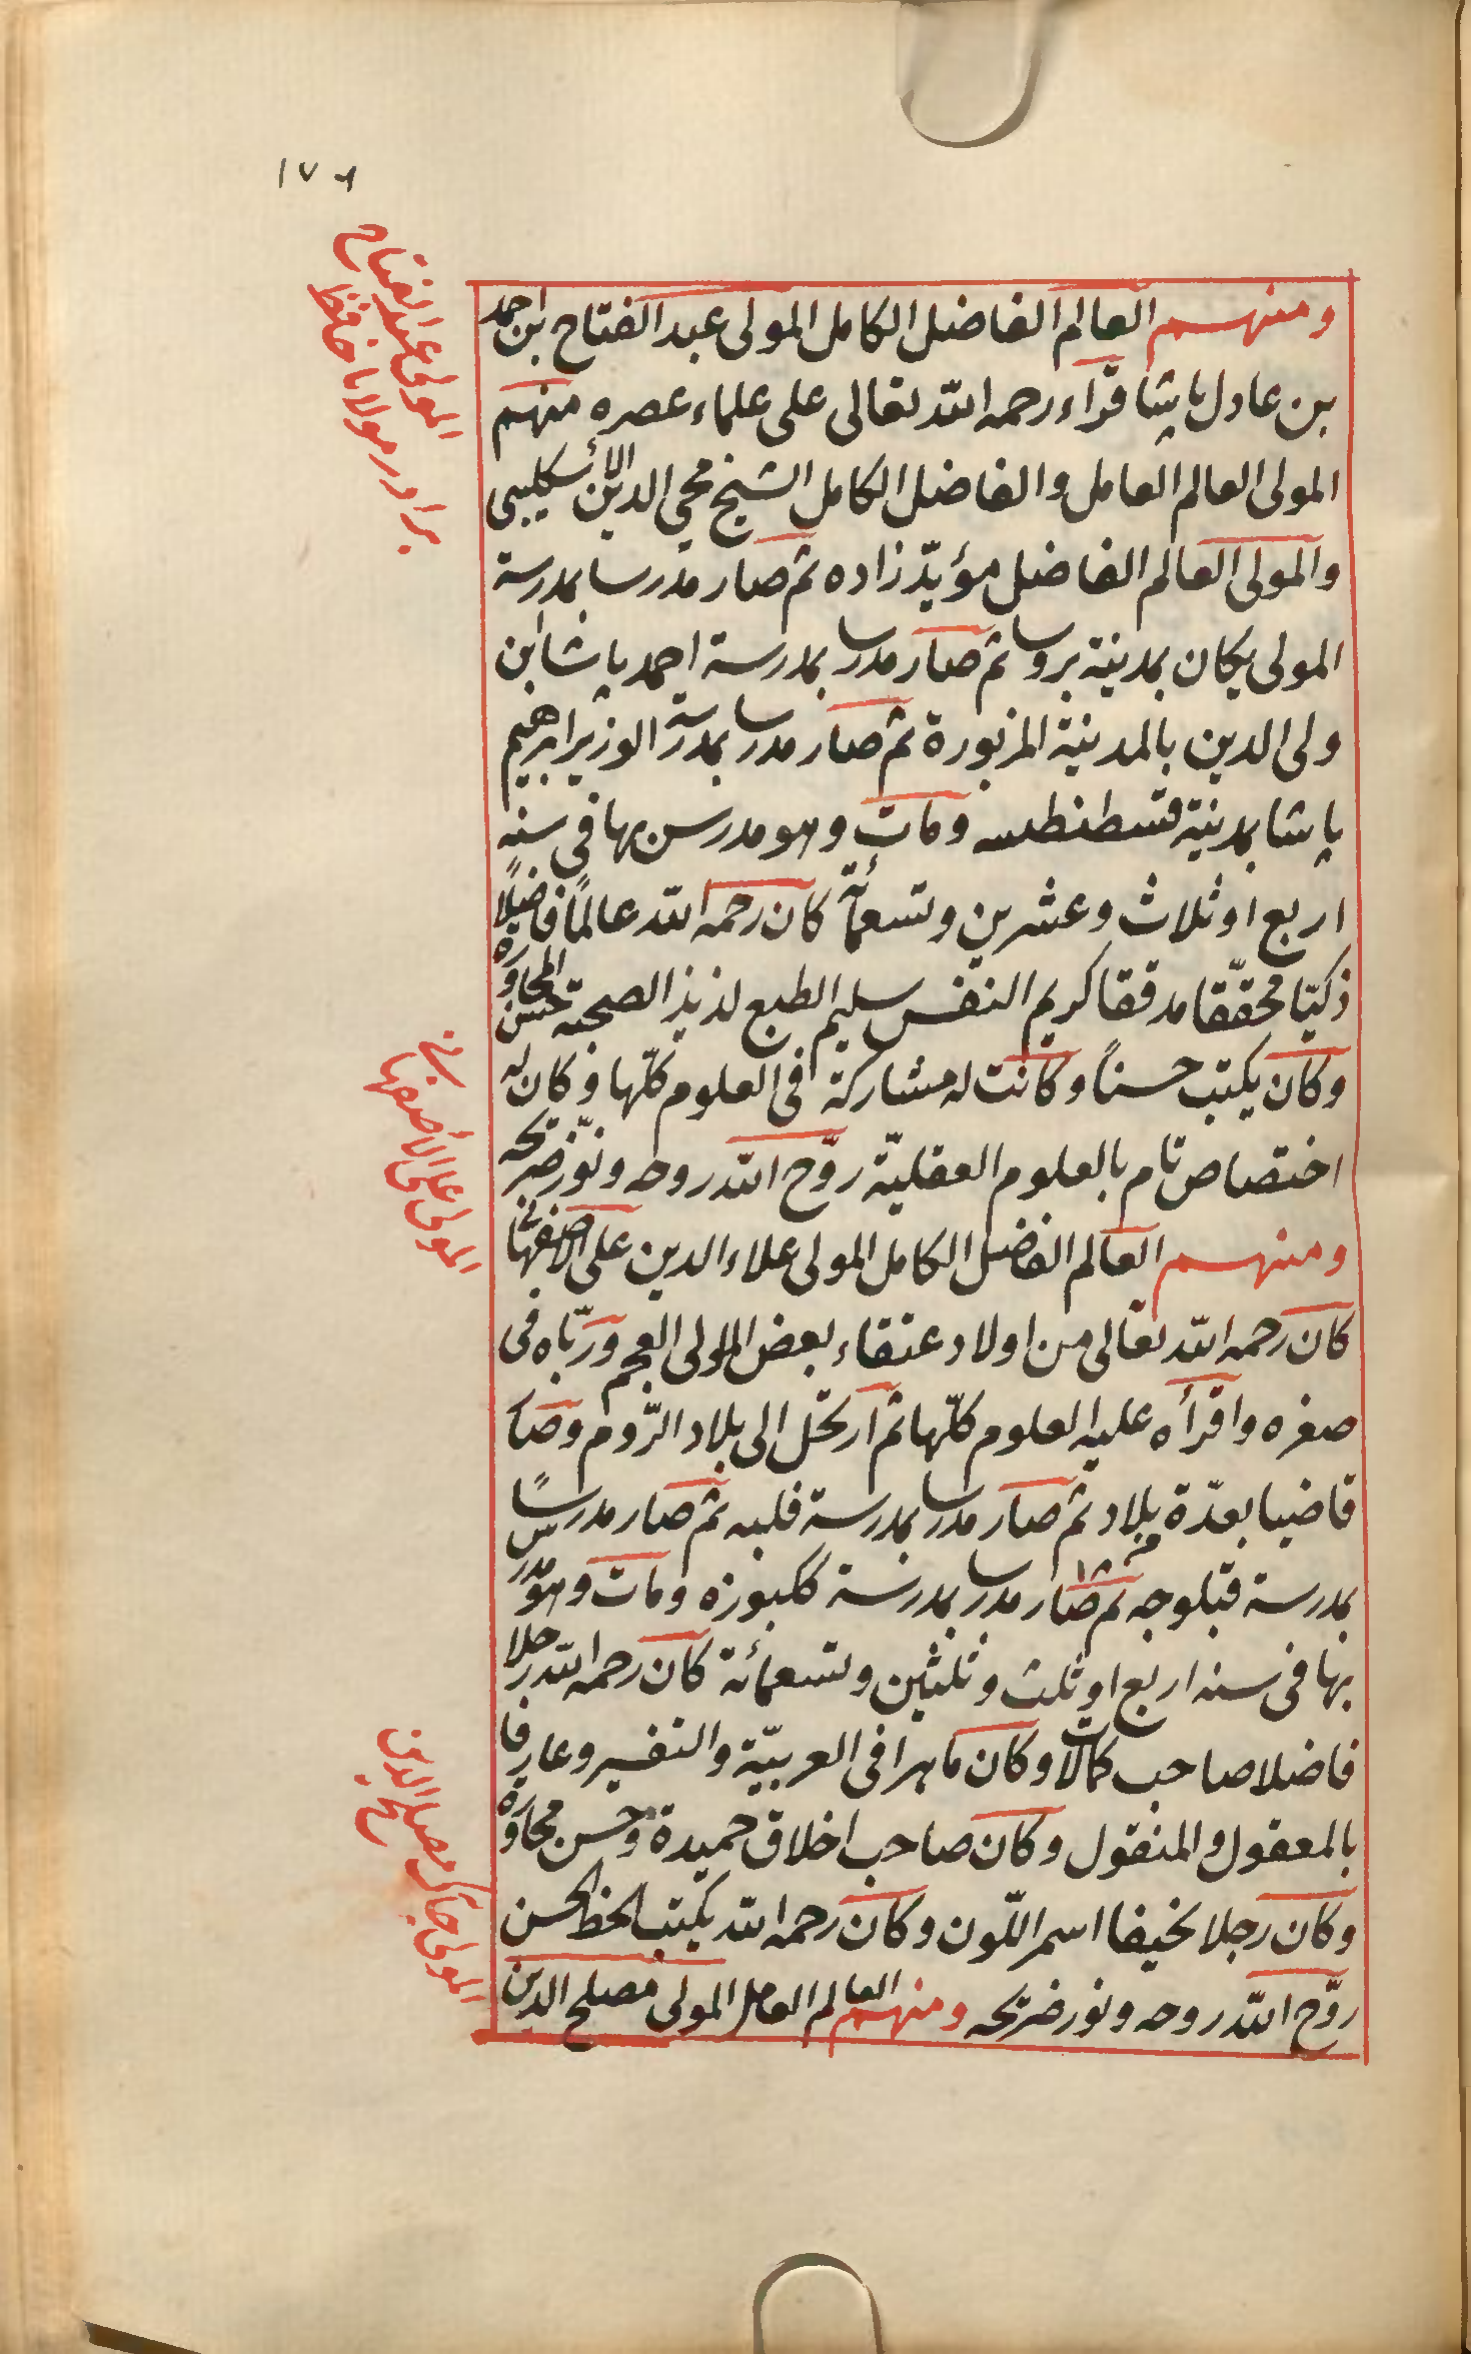 ١٧٦
المولى عبد الفتاح
برادر مولانا حافظ
ومنهم العالم الفاضل الكامل المولى عبد الفتاح ابن احمد
بن عادل پاشا قرأ رحمه الله تعالى على علماء عصره منهم
المولى العالم العامل والفاضل الكامل الشيخ محي الدين الأسكليبى
والمولى العالم الفاضل مؤيد زاده ثم صار مدرسا بمدرسة
المولى يكان بمدينة بروسا ثم صار مدرسا بمدرسة احمد پاشا ابن
ولى الدين بالمدينة المزبورة ثم صار مدرسا بمدرسة الوزير ابرهيم
پاشا بمدينة قسطنطنيه ومات وهو مدرس بها فى سنه
اربع او ثلاث وعشرين وتسعمائة كان رحمه الله عالمًا فاضلًا
ذكيّا محقّقا مدققا كريم النفس سليم الطبع لذيذ الصحبة حسن المحاوره
وكان يكتب حسناً وكانت له مشاركة فى العلوم كلّها وكان له
اختصاص تام بالعلوم العقليّة روّح الله روحه ونوّر ضريحه
المولى على الأصفهانى
ومنهم العالم الفاضل الكامل المولى علاء الدين على الاصفهانى
كان رحمه الله تعالى من اولاد عتقاء بعض الموالى العجم وربّاه فى
صغره واقرأه عليه العلوم كلّها ثم ارتحل الى بلاد الرّوم وصار
قاضيا بعدّة بلاد ثم صار مدرسا بمدرسة فلبه ثم صار مدرسًا
بمدرسة قبلوجه ثم صار مدرسا بمدرسة ككبوزه ومات وهو مدرس
بها فى سنه اربع او ثلث وثلثين وتسعمائة كان رحمه الله رجلا
فاضلا صاحب كمالات وكان ماهرا فى العربيّة والتفسير وعارفا
بالمعقول والمنقول وكان صاحب اخلاق حميدة وحسن محاوره
وكان رجلا نحيفا اسمر اللّون وكان رحمه الله يكتب الخط الحسن
روّح الله روحه ونور ضريحه ومنهم العالم العامل المولى مصلح الدين
المولى جاك مصلح الدين